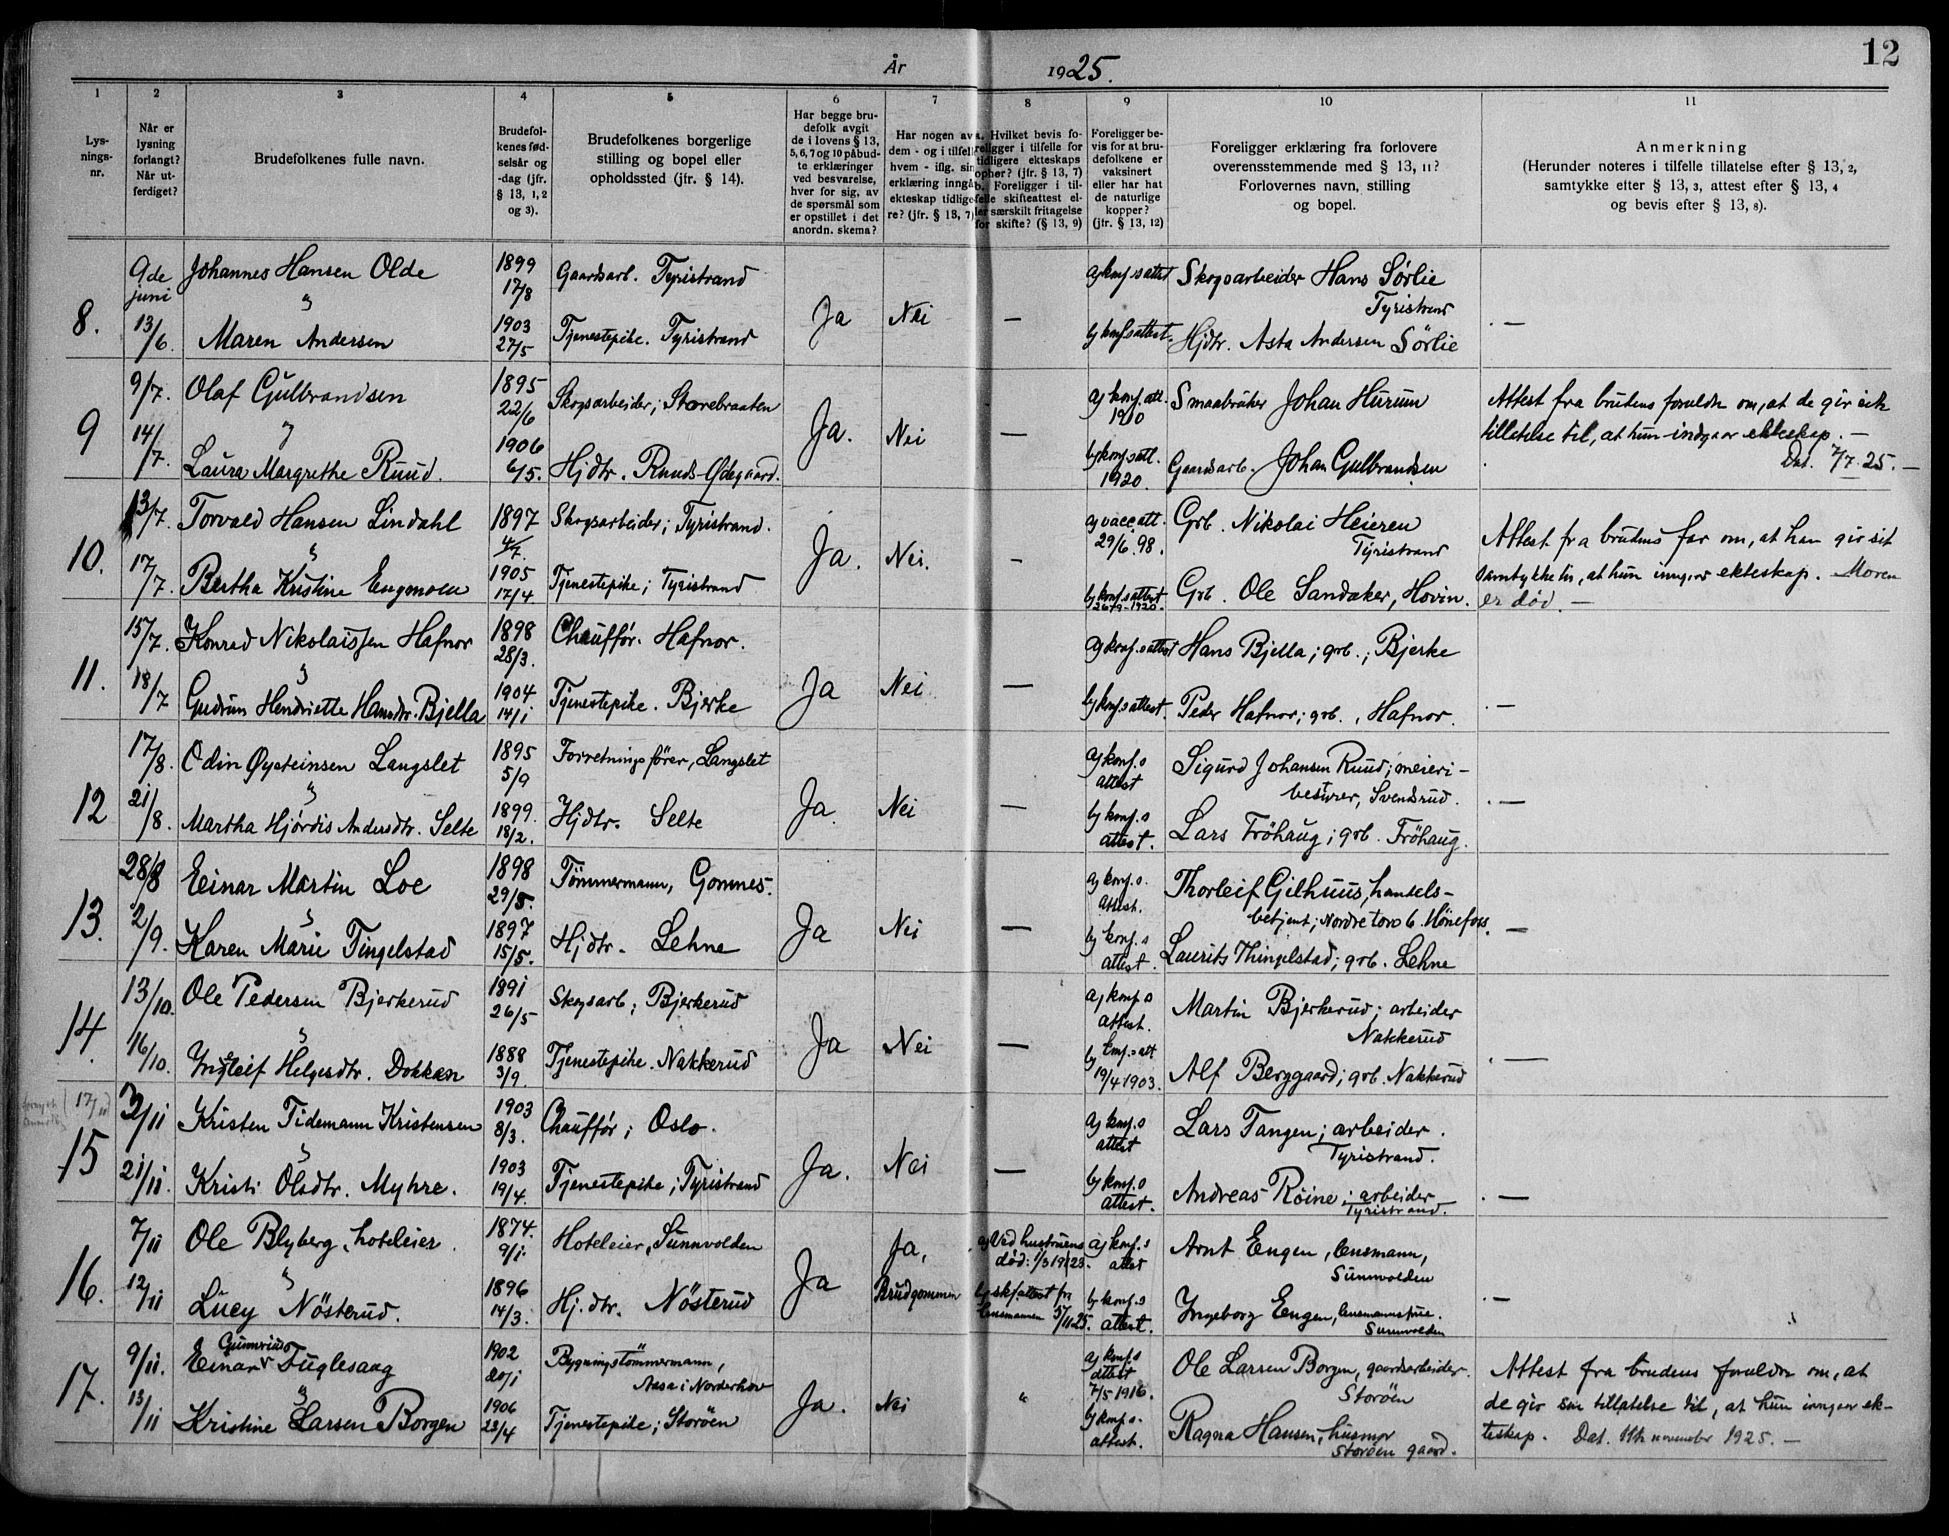 År 1925.
12
1 2 3 4 5 6 7 8 9 10 11
Lys-
nings-
nr.
Når er
lysning
forlangt?
Når ut-
ferdiget?
Brudefolkenes fulle navn.
Brudefol-
kenes fød-
selsår og
-dag (jfr.
§ 13, 1, 2
og 3).
Brudefolkenes borgerlige
stilling og bopel eller
opholdssted (jfr. § 14).
Har begge bru-
defolk avgit
de i lovens § 13,
5, 6, 7 og 10 påbud-
te erklæringer
ved besvarelse,
hver for sig, av
de spørsmål som
er opstillet i det
anordn. skema?
Har nogen av
dem - og i tilfelle
hvem - iflg. sin
erklæring inngå
ekteskap tidlige-
re? (jfr. § 13, 7)
a. Hvilket bevis fo-
religger i tilfelle for
tidligere ekteskaps
ophør? (jfr. § 13, 7)
b. Foreligger i til-
felle skifteattest el-
ler særskilt fritagelse
for skifte? (§ 13, 9)
Foreligger be-
vis for at bru-
defolkene er
vaksinert
eller har hat
de naturlige
kopper?
(jfr. § 13, 12)
Foreligger erklæring fra forlovere
overensstemmende med § 13, 11?
Forlovernes navn, stilling
og bopel.
Anmerkning
(Herunder noteres i tilfelle tillatelse efter § 13, 2,
samtykke efter § 13, 3, attest efter § 13, 4
og bevis efter § 13, 8).
8. 9de juni Johannes Hansen Olde 1899 17/8 Gaardsarb. Tyristrand Ja Nei — a) konf.sattest Skogsarbeider Hans Sørlie
Tyristrand
13/6. Maren Andersen 1903 27/5 Tjenestepike. Tyristrand b) konf.sattest. Hjdtr. Asta Andersen Sørlie —
9 9/7. Olaf Gulbrandsen 1895 22/6 Skogsarbeider; Storebraaten Ja. Nei — a) konf. att. 1910 Smaabruker Johan Hurum
14/7. Laura Margrethe Ruud. 1906 6/5. Hjdtr. Ruuds-Ødegaard. b) konf.satt. 1920. Gaardsarb. Johan Gulbrandsen
Attest fra brudens foreldre om, at de gir sit
tillatelse til, at hun indgaar ekteskap. —
Dat. 7/7 25. —
10. 13/7. Torvald Hansen Lindahl 1897 4/7. Skogsarbeider; Tyristrand. Ja. Nei. — a) vacc.att. 29/6. 98. Grb. Nikolai Heieren
Tyristrand
17/7. Bertha Kristine Engmoen 1905 17/4. Tjenestepike; Tyristrand b) konf.sattest 26/9-1920. Grb. Ole Sandaker, Hovin.
Attest fra brudens far om, at han gir sit
samtykke til, at hun inngaar ekteskap. Moren
er død. —
11. 15/7. Konrad Nikolaissen Hafnor 1898 28/3. Chauffør. Hafnor. Ja Nei — a) konf.sattest Hans Bjella; grb.; Bjerke
18/7 Gudrun Hendriette Hansdtr. Bjella 1904 14/1 Tjenestepike. Bjerke b) konf.sattest. Peder Hafnor; grb., Hafnor. —
12 17/8. Odin Øysteinsen Langslet 1895 5/9 Forretningsfører, Langslet Ja. Nei — a) konf.s attest Sigurd Johansen Ruud; meieri-
bestyrer, Svendsrud.
21/8. Martha Hjørdis Andersdtr. Selte 1899. 18/2. Hjdtr. Selte b) konf.s attest. Lars Frøhaug; grb. Frøhaug. —
13. 28/8 Einar Martin Loe 1898 29/5. Tømmermann, Gomnes. Ja Nei — a) konf.s. attest. Thorleif Gilhuus, handels-
betjent; Nordre torv 6. Hønefoss.
2/9. Karen Marie Tingelstad 1897 15/5. Hjdtr. Lehne b) konf.s attest. Laurits Thingelstad; grb. Lehne —
14. 13/10. Ole Pedersen Bjerkerud 1891 26/5 Skogsarb; Bjerkerud Ja Nei — a) konf.s attest. Martin Bjerkerud; arbeider
Nakkerud
16/10. Helgesdtr. Dokken 1888 3/9. Tjenestepike. Nakkerud b) konf.satt 19/4 1903. Alf Berggaard; grb. Nakkerud —
(17/11)
15 2/11 Kristen Tidemann Kristensen 1903 8/3. Chauffør; Oslo. Ja. Nei — a) konf.s attest Lars Tangen; arbeider.
Tyristrand.
21/11. Kristi Olsdtr. Myhre. 1903 19/4. Tjenestepike; Tyristrand b) konf.s attest. Andreas Røine; arbeider
Tyristrand. —
16. 7/11 Ole Blyberg, hoteleier. 1874. 9/1. Hoteleier, Sunnvolden Ja Ja, Brudgommen a) Ved hustruens død: 1/3 1923. a) konf.s attest Arnt Engen, lensmann,
Sunnvolden
12/11 Lucy Nøsterud. 1896 14/3. Hj.dtr. Nøsterud b) skf.attest fra lensmannen 5/11 25. b) konf.s attest. Ingeborg Engen, lensmannsfrue.
Sunnvolden —
17. 9/11. Einar Gunvrius Fuglesaag 1902 20/1 Bygningstømmermann,
Aasa i Norderhov Ja. Nei " a) konf.s attest 7/5 1916. Ole Larsen Borgen, gaardsarbeider.
Storøen
13/11 Kristine Larsen Borgen 1906 23/4 Tjenestepike; Storøen b) konf.s. attest. Ragna Hansen, husmor
Storøen gaard.
Attest fra brudens foreldre om, at
de gir sin tillatelse til, at hun inngaar ek-
teskap. Dat. 11te november 1925. —